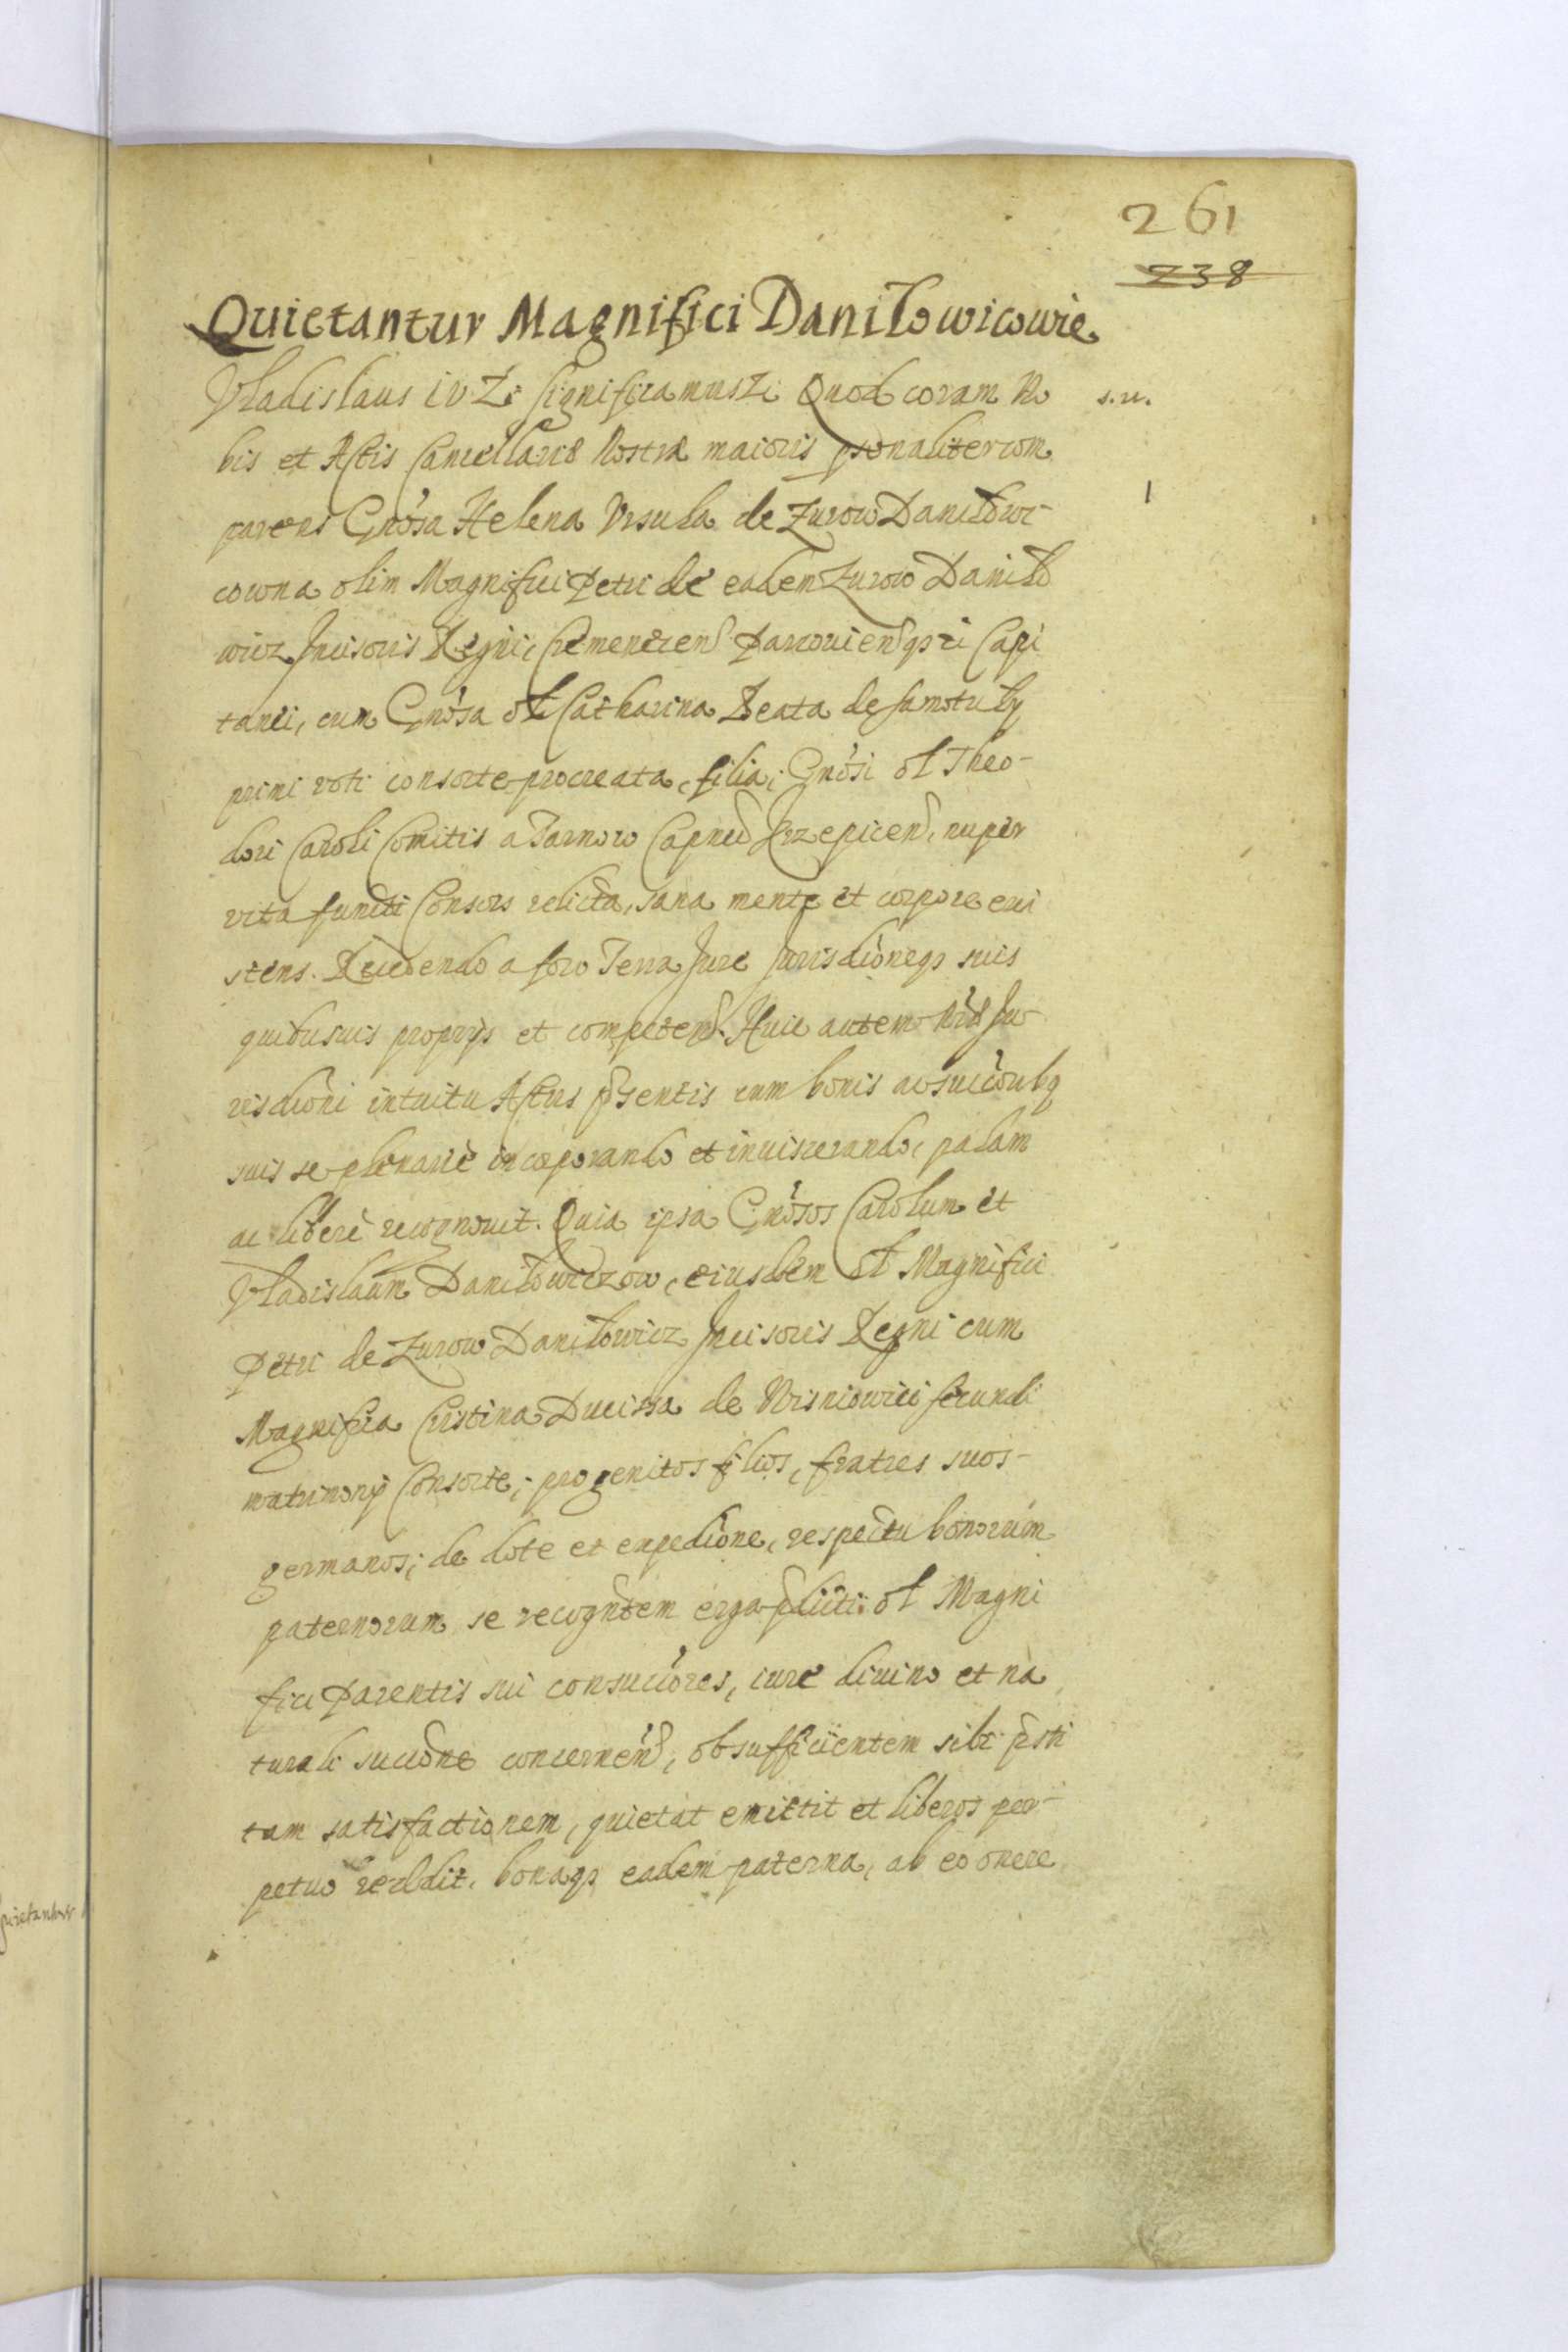 261
238
Quietantur Magnifici Daniłowicowie
Vladislaus IV Z: Significamus Z: Quod coram No
s. n.
bis et Actis Cancellariæ Nostræ maioris psonaliter com
parens Gnosa Helena Vrsula de Zurow Daniłowi-
1
cowna olim Magnifici Petri de eadem Zurow Daniło
wicz Incisoris Regni, Cremenecen Parcouienqz Capi
tanei, cum Gnosa ol Catharina Beata de Samotuły
primi voti consorte procreata, filia; Gnosi ol Theo-
dori Caroli Comitis a Tarnow Capnei Krzepicen, nuper
vita functi Consors relicta, sana mente et corpore exi
stens. Recedendo a foro Terra Jure Jurisdioneqz suis
quibusuis proprijs et competen. Huic autem Nræ Ju
risdioni intuitu Actus psentis cum bonis ac succoubq
suis se plenariè incorporando et inuiscerando, palam
ac liberè recognouit. Quia ipsa Gnosos Carolum et
Vladislaum Daniłowiczow, eiusdem ol Magnifici
Petri de Zurow Daniłowicz Incisoris Regni cum
Magnifica Cristina Ducissa de Wisniowiec secundi
matrimonij Consorte; progenitos filios, fratres suos-
germanos; de dote et expedione, respectu bonorum
paternorum se recogntem erga pdicti ol Magni
fici Parentis sui consuccores, iure diuino et na
turali succone concernen, ob sufficientem sibi psti
tam satisfactionem, quietat emittit et liberos per-
petuo reddit, bonaqz eadem paterna, ab eo onere
quietantur